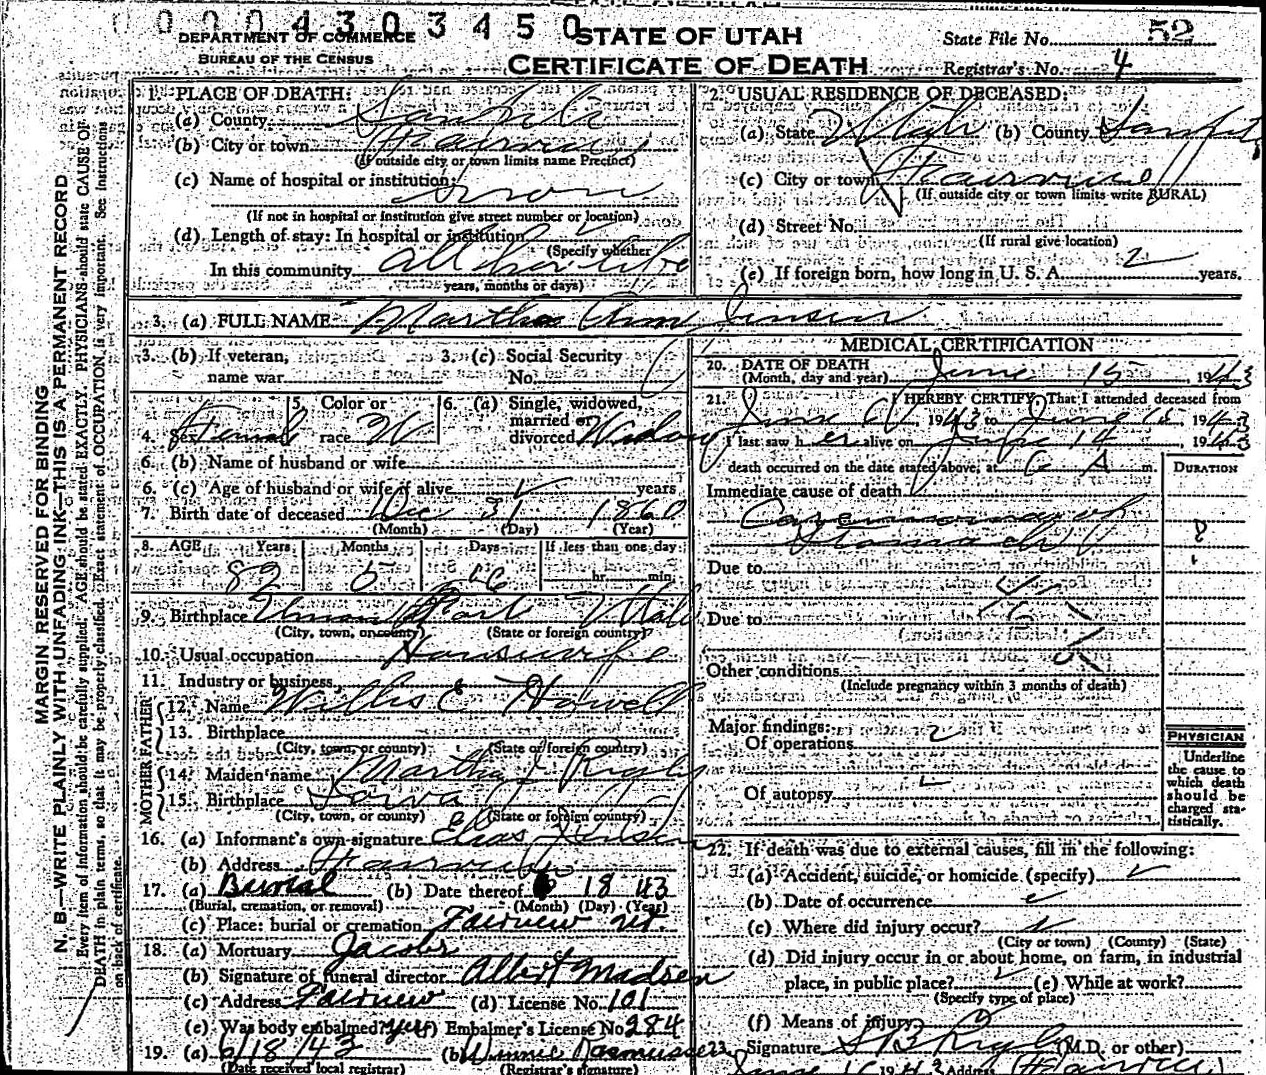 0004303450
DEPARTMENT OF COMMERCE
BUREAU OF THE CENSUS
STATE OF UTAH
CERTIFICATE OF DEATH
State File No. 52
Registrar's No. 4
MARGIN RESERVED FOR BINDING
N. B.—WRITE PLAINLY WITH UNFADING INK—THIS IS A PERMANENT RECORD
Every item of information should be carefully supplied. AGE should be stated EXACTLY. PHYSICIANS should state CAUSE OF
DEATH in plain terms, so that it may be properly classified. Exact statement of OCCUPATION is very important. See instructions
on back of certificate.
1. PLACE OF DEATH:
(a) County
(b) City or town Fairview
(If outside city or town limits name Precinct)
(c) Name of hospital or institution:
(If not in hospital or institution give street number or location)
(d) Length of stay: In hospital or institution
(Specify whether
In this community All her life
years, months or days)
2. USUAL RESIDENCE OF DECEASED:
(a) State Utah (b) County Sanpete
(c) City or town Fairview
(If outside city or town limits write RURAL)
(d) Street No.
(If rural give location)
(e) If foreign born, how long in U. S. A. years.
3. (a) FULL NAME Martha Ann Jensen
3. (b) If veteran,
name war
3. (c) Social Security
No.
4. Sex Female
5. Color or
race W
6. (a) Single, widowed,
married or
divorced Widow
6. (b) Name of husband or wife
6. (c) Age of husband or wife if alive years
7. Birth date of deceased Dec 31 1860
(Month) (Day) (Year)
8. AGE Years Months Days If less than one day
82 5 hr. min.
9. Birthplace Utah
(City, town, or county) (State or foreign country)
10. Usual occupation Housewife
11. Industry or business
FATHER
12. Name Willis E Howell
13. Birthplace
(City, town, or county) (State or foreign country)
MOTHER
14. Maiden name Martha J Rigby
15. Birthplace Iowa
(City, town, or county) (State or foreign country)
16. (a) Informant's own signature Elias Jensen
(b) Address Fairview
17. (a) Burial (b) Date thereof 6 18 43
(Burial, cremation, or removal) (Month) (Day) (Year)
(c) Place: burial or cremation Fairview Ut.
18. (a) Mortuary Jacobs
(b) Signature of funeral director Albert Madsen
(c) Address Fairview (d) License No. 101
(e) Was body embalmed? yes (f) Embalmer's License No. 284
19. (a) 6/18/43 (b) Winnie Rasmussen
(Date received local registrar) (Registrar's signature)
MEDICAL CERTIFICATION
20. DATE OF DEATH
(Month, day and year) June 15, 1943
21. I HEREBY CERTIFY, That I attended deceased from
June 1943 to June 15, 1943
I last saw her alive on June 14, 1943
death occurred on the date stated above, at 6 A m.
DURATION
Immediate cause of death
Carcinoma of
Stomach
Due to
Due to
Other conditions
(Include pregnancy within 3 months of death)
Major findings:
Of operations
Of autopsy
PHYSICIAN
Underline
the cause to
which death
should be
charged sta-
tistically.
22. If death was due to external causes, fill in the following:
(a) Accident, suicide, or homicide (specify)
(b) Date of occurrence
(c) Where did injury occur?
(City or town) (County) (State)
(d) Did injury occur in or about home, on farm, in industrial
place, in public place? (e) While at work?
(Specify type of place)
(f) Means of injury
23. Signature Rigby (M.D. or other)
June 1943 Address Fairview